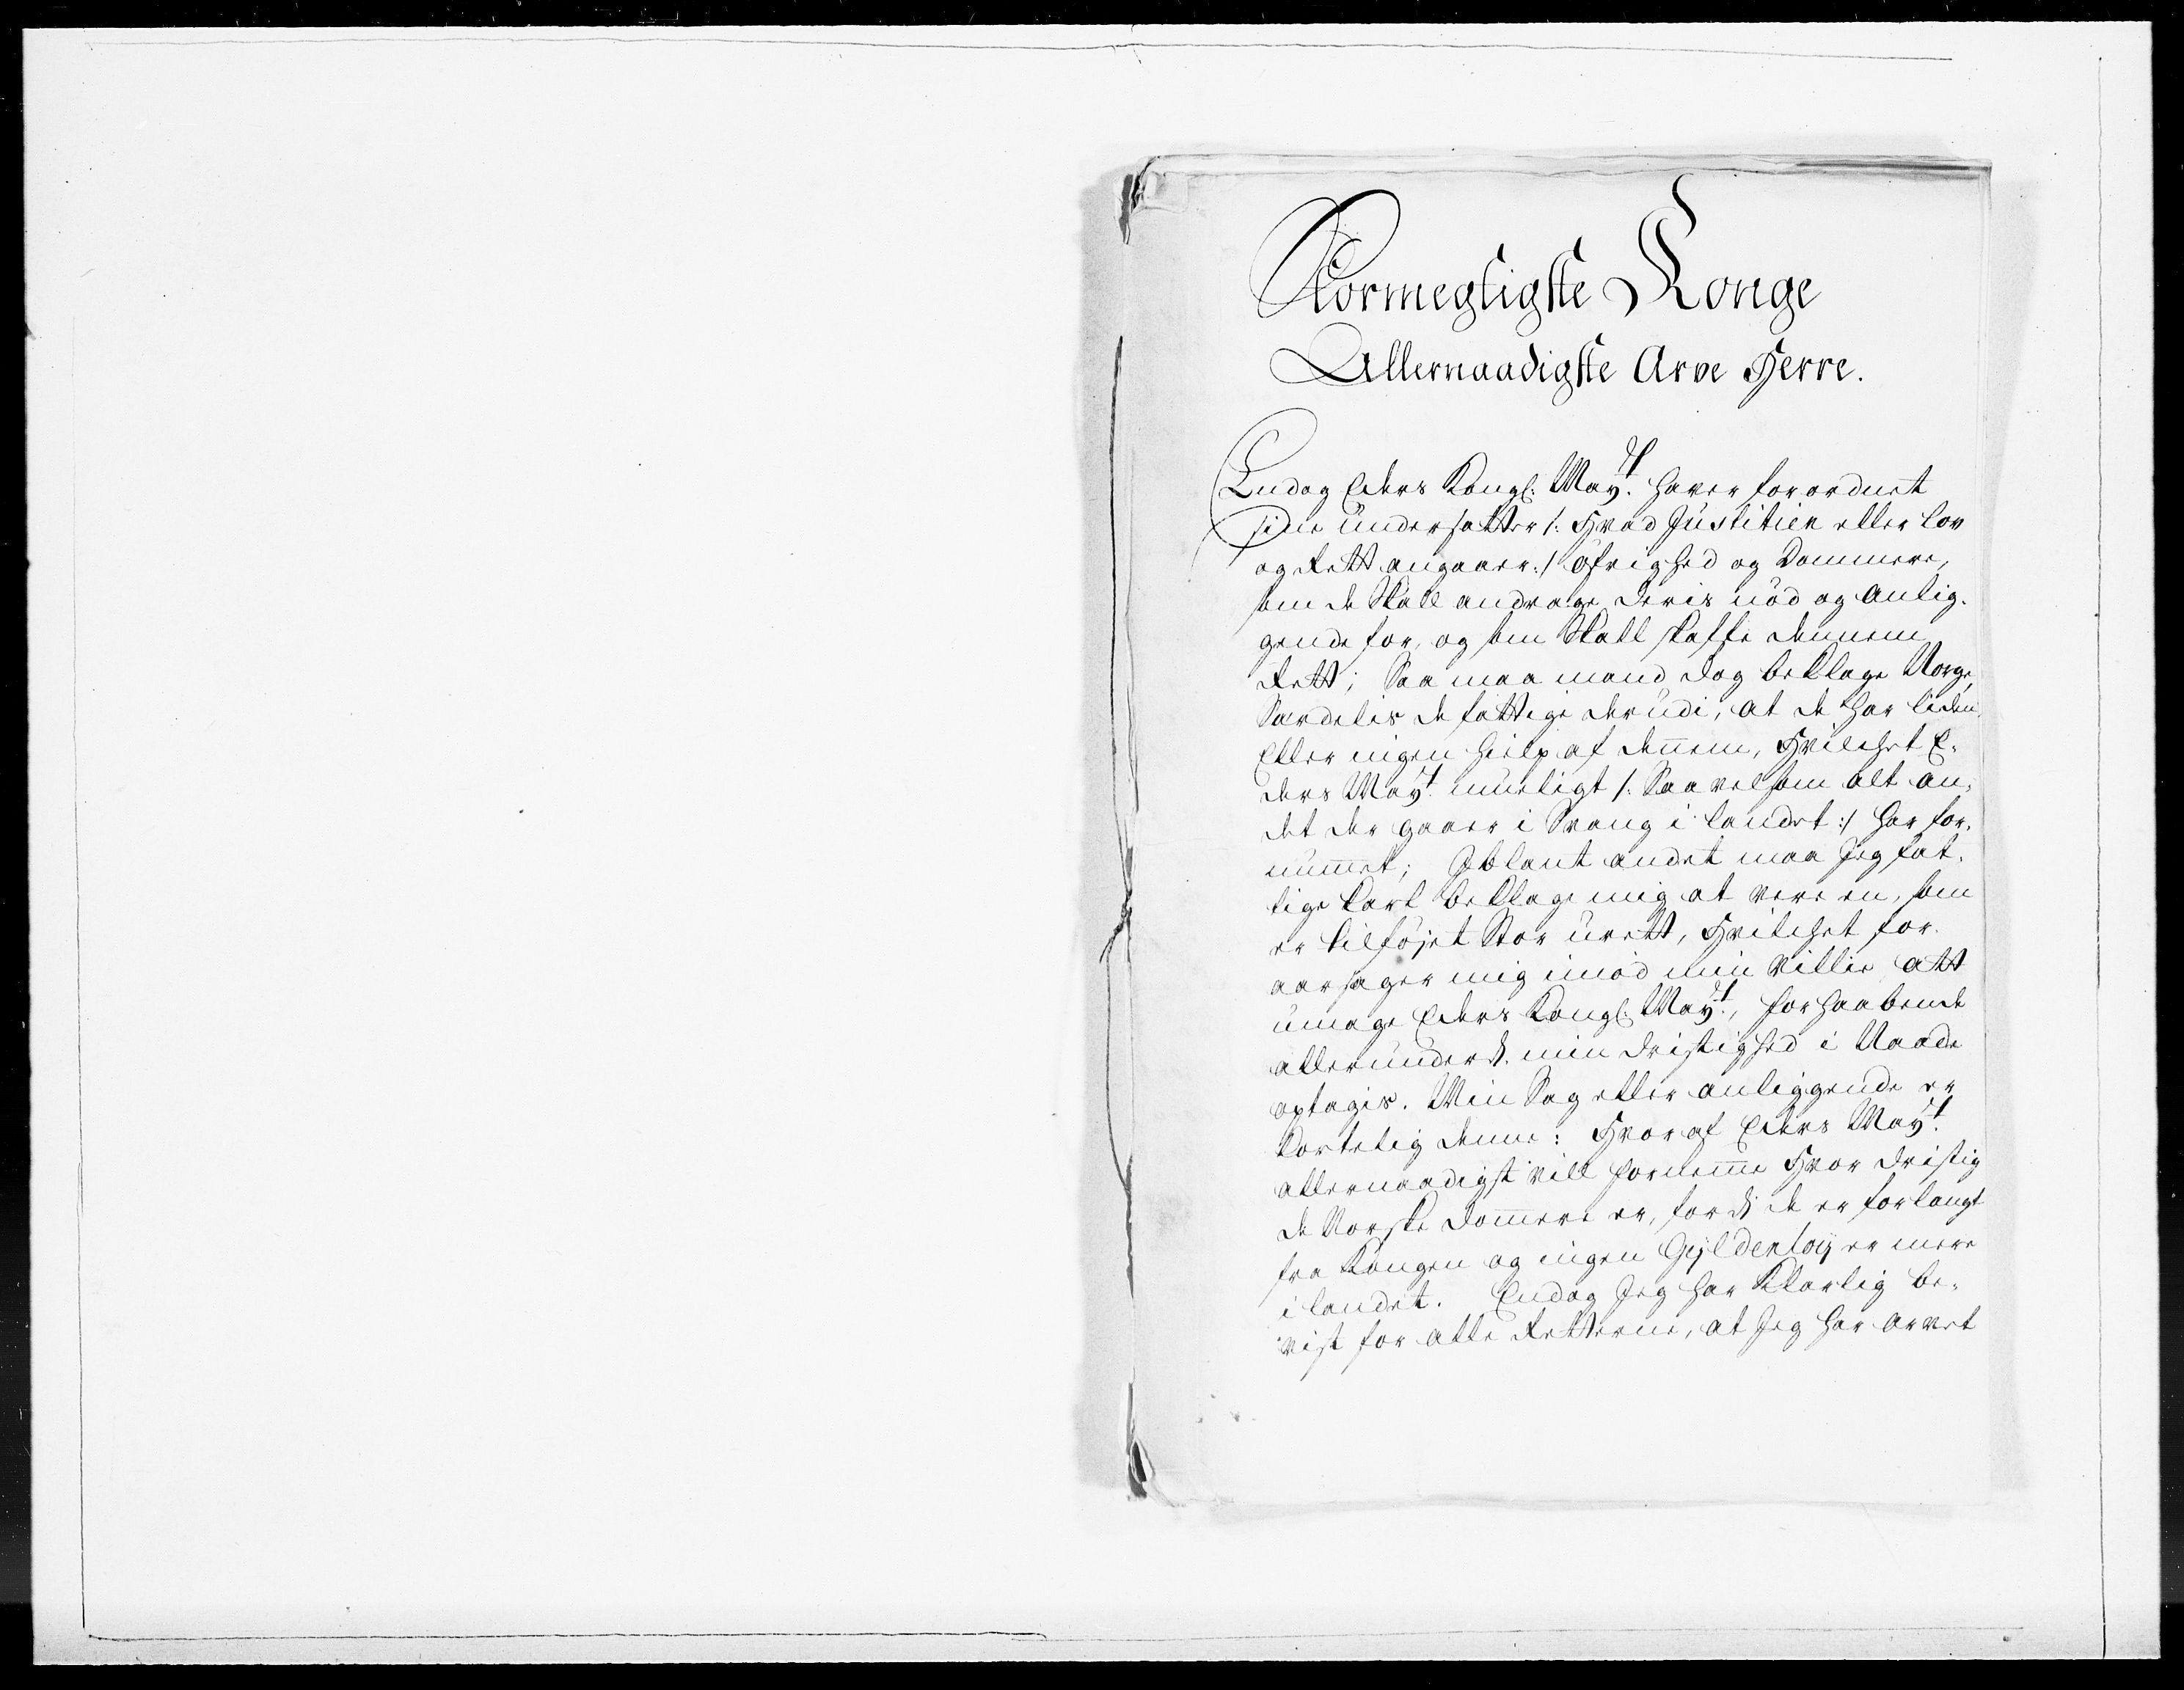 Stormegtigste Konge
Allernaadigste Arve Herre.
Endog Eders Kongl: Mayt. haver forordnet
sine undersatter /: Hvad Justitien eller lov
og Rett angaaer :/ øfrighed og Dommere,
som de Skall andrage deris nød og anlig-
gende for, og som Skall skaffe dennem
Rett; Saa maa mand dog beklage Norge,
Særdelis de fattige derudi, at de har liden
Eller ingen hielp af dennem, Hvilchet E-
ders Mayt. mueligt /: Saavelsom alt an-
det der gaaer i Svang i landet :/ har for-
nummet; Iblant andet maa Jeg fat-
tige karl beklage mig at vere en, som
er tilføjet Stor urett, Hvilchet for-
aarsager mig imod min villie att
umage Eders Kongl: Mayt., forhaabende
allerunderd. min dristighed i Naade
optagis. Min Sag eller anliggende er
kortelig denne: Hvoraf Eders Mayt.
allernaadigst vill fornemme Hvor dristig
de Norske dommere er, fordj de er forlangt
fra Kongen og ingen Gyldenløy er mere
i landet. Endog Jeg har klarlig be-
vist for alle Retterne, at Jeg har arvet